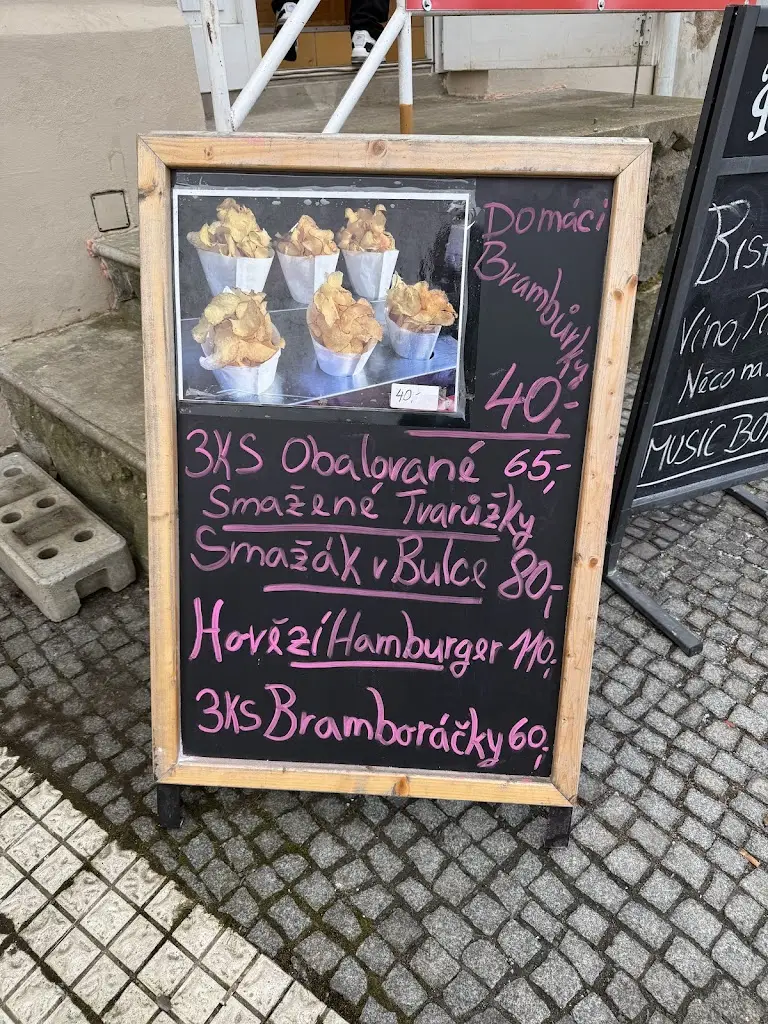 Domácí
Brambůrky
40,-
40,-
3KS Obalované 65,-
Smažené Tvarůžky
Smažák v Bulce 80,-
Hovězí Hamburger 110,-
3KS Bramboráčky 60,-
Víno,
Něco na
MUSIC BOX